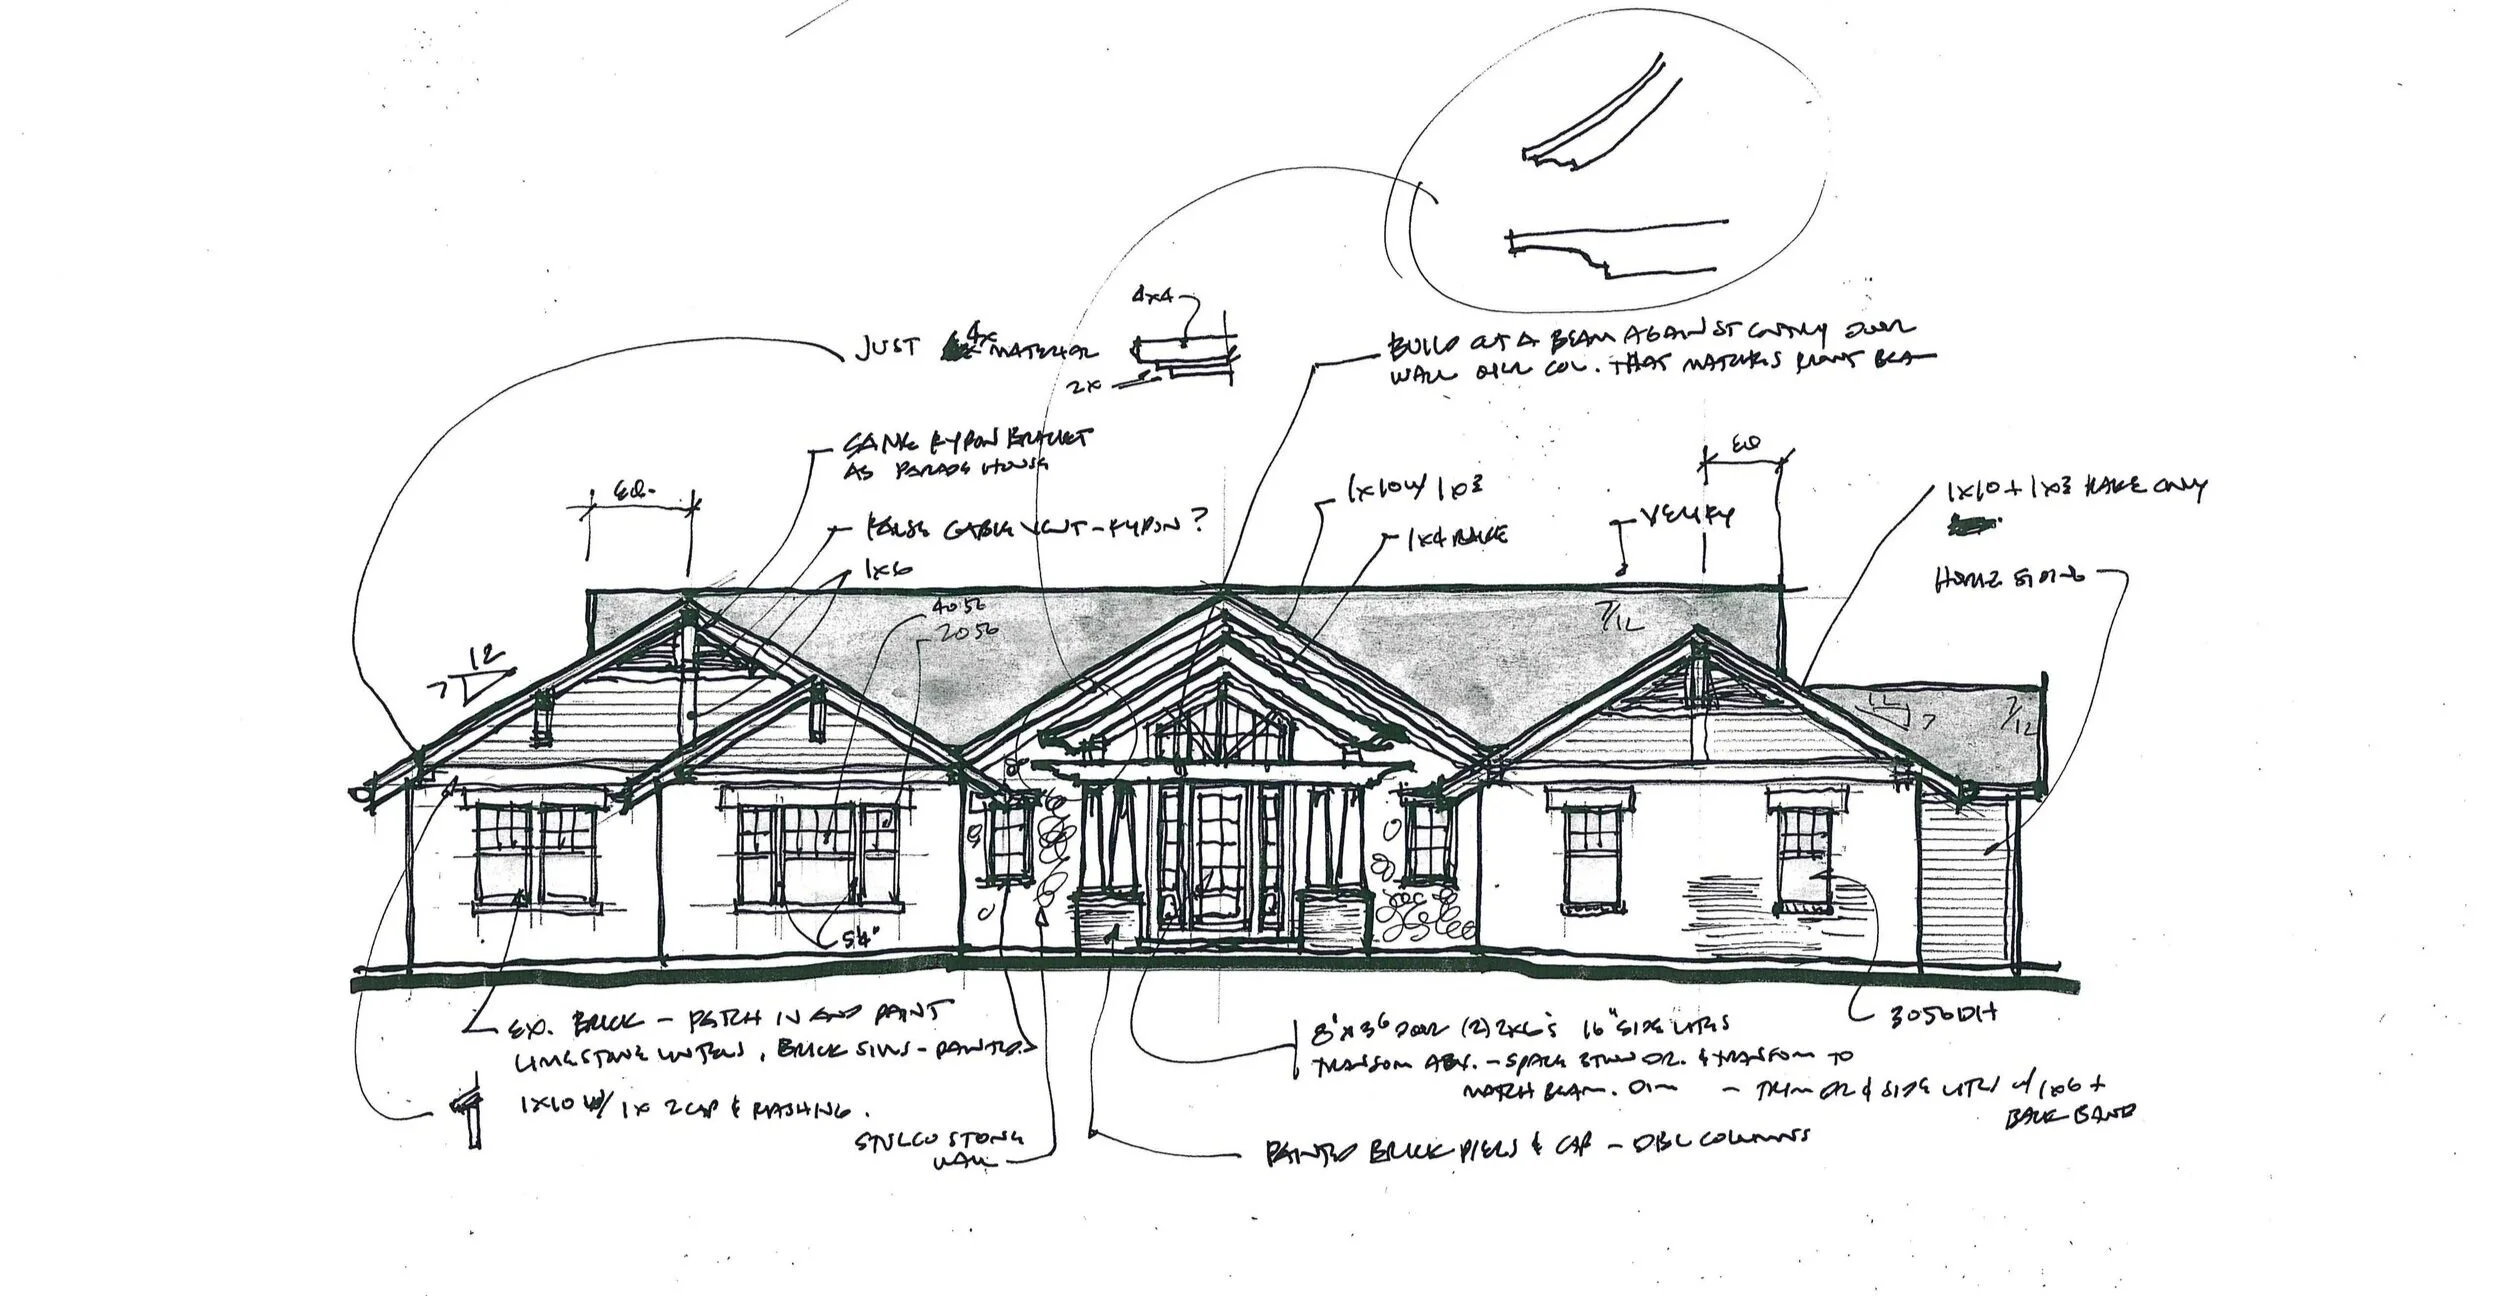 4x4
JUST 4x MATERIAL
2x
BUILD OUT A BEAM AGAINST ENTRY DOOR
WALL OVER COL. THAT MATCHES FRONT BEA
SAME FYPON BRACKET
AS PARADE HOUSE
EQ.
EQ
FALSE GABLE VENT - FYPON?
1x6
1x10 w/ 1x3
1x4 RAKE
VERIFY
1x10 + 1x3 RAKE ONLY
HORIZ SIDING
4056
2056
7/12
12
7
12
7
7/12
54"
EX. BRICK - PATCH IN AND PAINT
LIMESTONE LINTELS, BRICK SILLS - PAINTED.
1x10 w/ 1x 2 CAP & FLASHING.
STUCCO STONE
WALL
8' x 3⁶ DOOR (2) 16" SIDE LITES
TRANSOM ABV. - SPACE BTWN DR. & TRANSOM TO
MATCH BEAM. DIM - TRIM DR & SIDE LITES w/ 1x6 +
BACK BAND
3056 DH
PAINTED BRICK PIERS & CAP - DBL COLUMNS